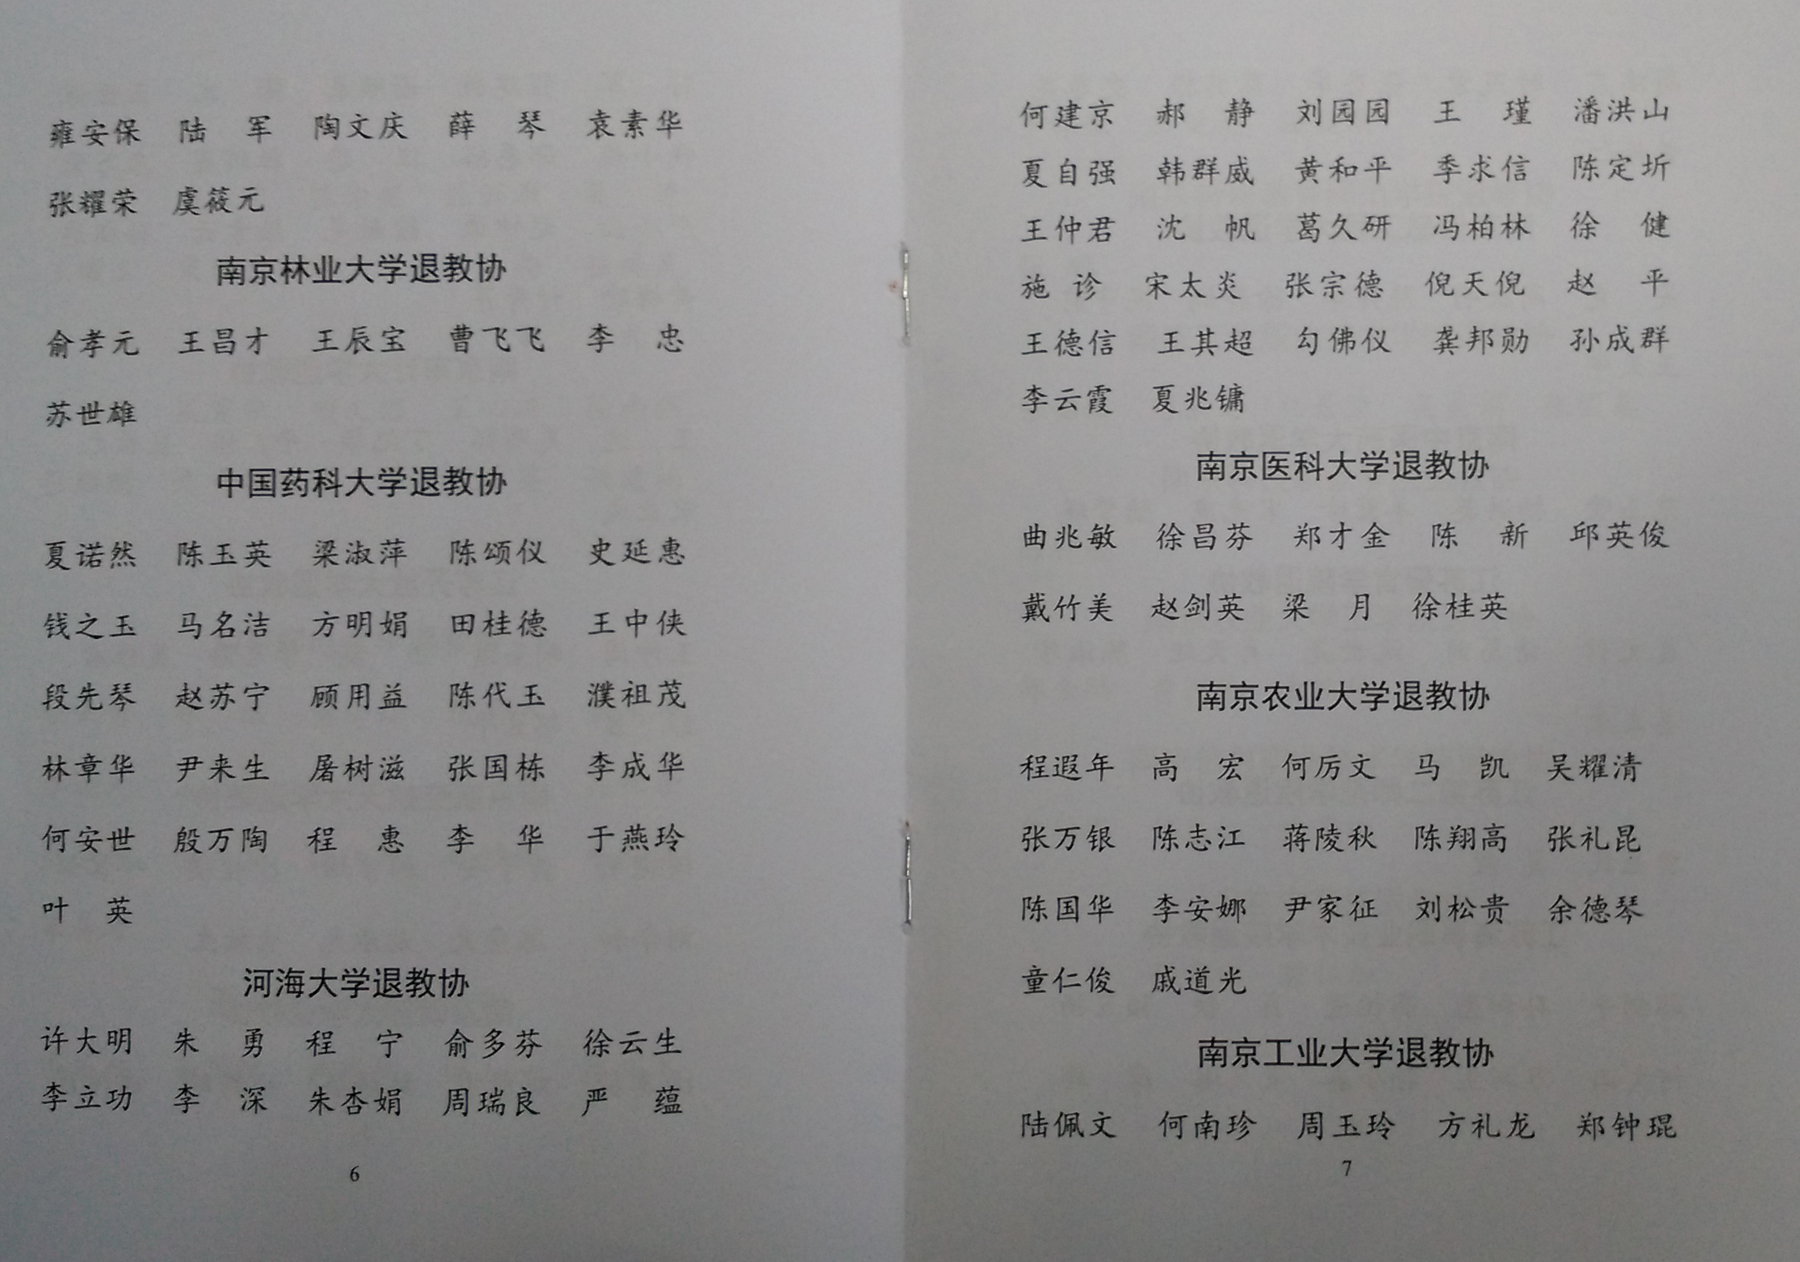 雍安保 陆 军 陶文庆 薛 琴 袁素华
张耀荣 虞筱元
南京林业大学退教协
俞孝元 王昌才 王辰宝 曹飞飞 李 忠
苏世雄
中国药科大学退教协
夏诺然 陈玉英 梁淑萍 陈颂仪 史延惠
钱之玉 马名洁 方明娟 田桂德 王中侠
段先琴 赵苏宁 顾用益 陈代玉 濮祖茂
林章华 尹来生 屠树滋 张国栋 李成华
何安世 殷万陶 程 惠 李 华 于燕玲
叶 英
河海大学退教协
许大明 朱 勇 程 宁 俞多芬 徐云生
李立功 李 深 朱杏娟 周瑞良 严 蕴
6
何建京 郝 静 刘园园 王 瑾 潘洪山
夏自强 韩群威 黄和平 季求信 陈定圻
王仲君 沈 帆 葛久研 冯柏林 徐 健
施 诊 宋太炎 张宗德 倪天倪 赵 平
王德信 王其超 勾佛仪 龚邦勋 孙成群
李云霞 夏兆镛
南京医科大学退教协
曲兆敏 徐昌芬 郑才金 陈 新 邱英俊
戴竹美 赵剑英 梁 月 徐桂英
南京农业大学退教协
程遐年 高 宏 何厉文 马 凯 吴耀清
张万银 陈志江 蒋陵秋 陈翔高 张礼昆
陈国华 李安娜 尹家征 刘松贵 余德琴
童仁俊 戚道光
南京工业大学退教协
陆佩文 何南珍 周玉玲 方礼龙 郑钟琨
7